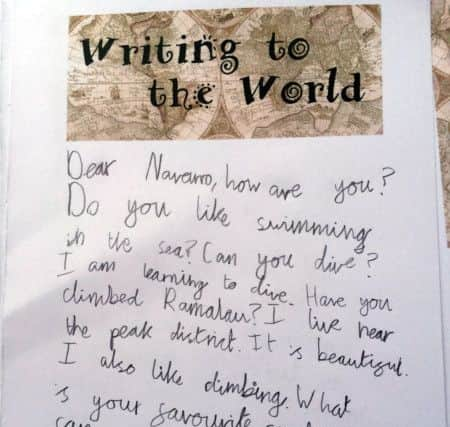 Writing to
the World
Dear Navarro, how are you?
Do you like swimming
in the sea? Can you dive?
I am learning to dive. Have you
climbed Ramalau? I live near
the peak district. It is beautiful.
I also like climbing. What
is your favourite